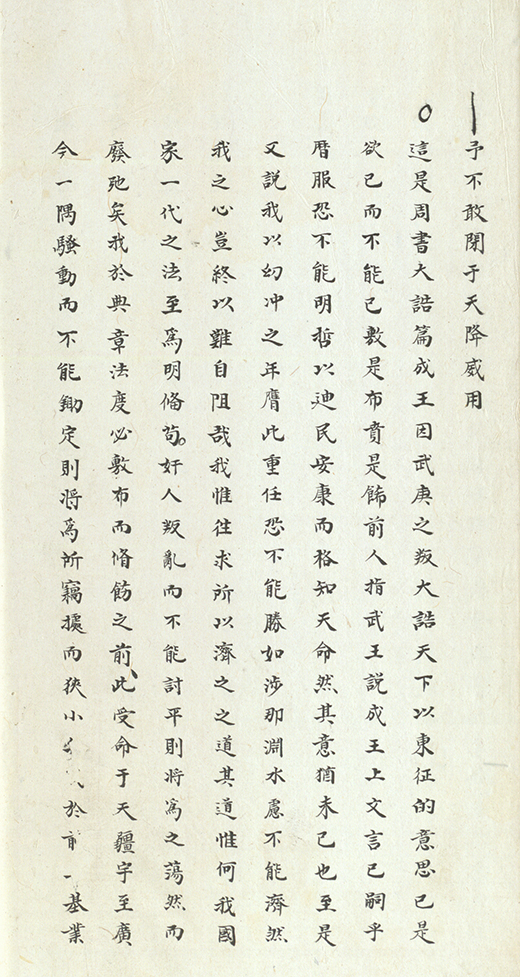 予不敢閉于天降威用
○這是周書大誥篇成王因武庚之叛大誥天下以東征的意思已是
欲已而不能已敷是布賁是餙前人指武王說成王上文言已嗣乎
曆服恐不能明哲以迪民安康而格知天命然其意猶未已也至是
又說我以幼冲之年膺此重任恐不能勝如涉那淵水慮不能濟然
我之心豈終以難自阻哉我惟徃求所以濟之之道其道惟何我國
家一代之法至爲明俻苟奸人叛亂而不能討平則将爲之蕩然而
廢弛矣我於典章法度必敷布而脩餙之前此受命于天疆宇至廣
今一隅騷動而不能鋤定則将爲所竊據而狹小於前基業